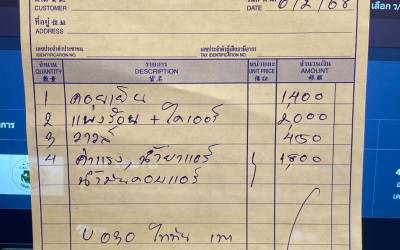 CUSTOMER
DATE 6/2/68
ที่อยู่ 住址
ADDRESS
เลขประจำตัวประชาชน เลขประจำตัวผู้เสียภาษีอากร
IDENTIFICATION NO. TAX IDENTIFICATION NO.
จำนวน รายการ หน่วยละ จำนวนเงิน
QUANTITY DESCRIPTION UNIT PRICE AMOUNT
1 คอยเย็น 1,400
2 แผงร้อน + ไดเออร์ 2,000
3 วาวล์ 450
4 ค่าแรง, น้ำยาแอร์ 1,800
น้ำมันคอมแอร์